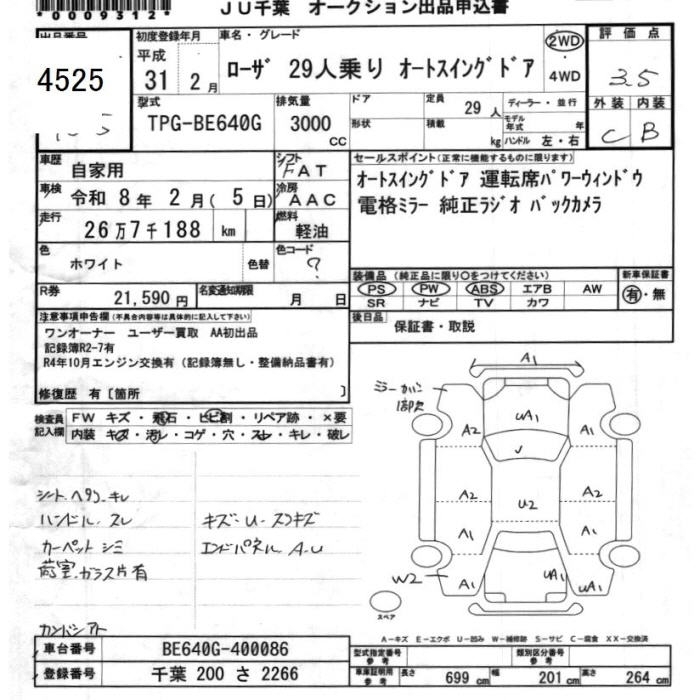 *0009312*
JU千葉 オークション出品申込書
出品番号
4525
初度登録年月
平成
31 年 2 月
車名・グレード
ローザ 29人乗り オートスイングドア
2WD
・
4WD
評価点
3.5
外装 内装
C B
型式
TPG-BE640G
排気量
3000
CC
ドア
形状
定員 29 人
積載 kg
ディーラー・並行
モデル年式 年
ハンドル 左・右
車歴
自家用
シフト
FAT
車検
令和 8 年 2 月 ( 5 日)
冷房
AAC
走行
26万7千188 km
燃料
軽油
色
ホワイト
色替
色コード
?
R券
21,590 円
名変通知期限
月 日
セールスポイント(正常に機能するものに限ります)
オートスイングドア 運転席パワーウィンドウ
電格ミラー 純正ラジオ バックカメラ
装備品 (純正品に限り○をつけてください)
PS PW ABS エアB AW
SR ナビ TV カワ
新車保証書
有・無
後日品
保証書・取説
注意事項申告欄(不具合内容等は具体的に記入して下さい)
ワンオーナー ユーザー買取 AA初出品
記録簿R2-7有
R4年10月エンジン交換有(記録簿無し・整備納品書有)
修復歴 有〔箇所 〕
検査員
記入欄
FW キズ・飛石・ヒビ割・リペア跡・×要
内装 キズ・汚れ・コゲ・穴・スレ・キレ・破レ
シート ヘタリ キレ
ハンドル スレ
カーペット シミ
荷室 ガラス片有
キズ・U・スリキズ
エンドパネル A-U
A1
ミラーカバー
1部欠
A2
UA1
A1
レ
A2
U2
A2
A1
A1
W2
A1
UA1
UA1
スペア
A－キズ E－エクボ U－凹み W－補修跡 S－サビ C－腐食 XX－交換済
車台番号
BE640G-400086
登録番号
千葉 200 さ 2266
型式指定番号
参考
類別区分番号
参考
車庫証明用
参考
長さ 699 cm 幅 201 cm 高さ 264 cm